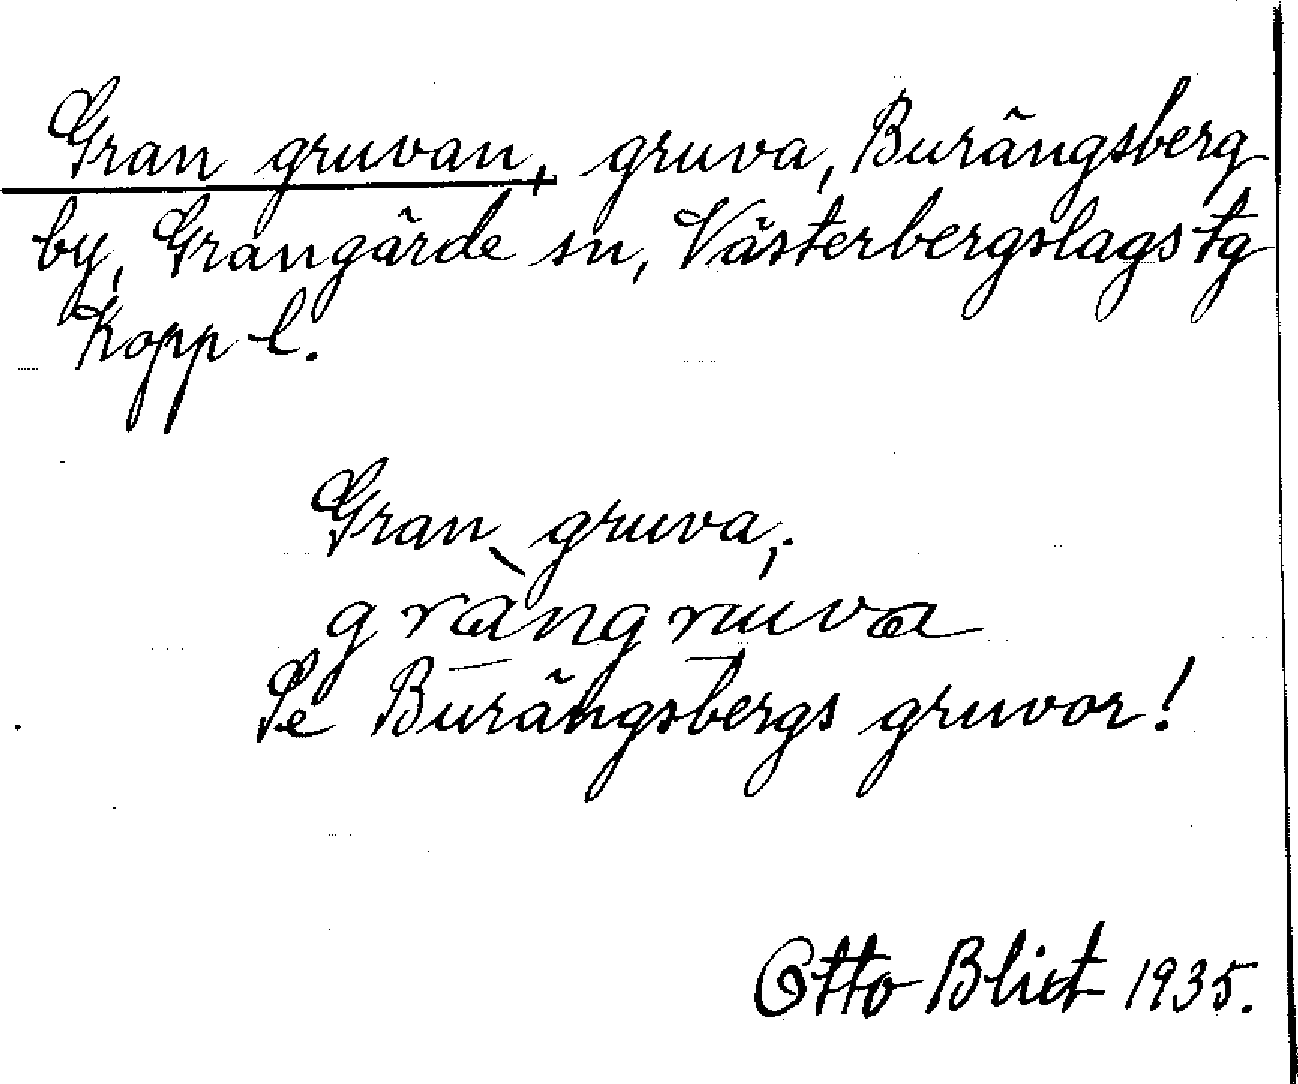 Gran gruvan, gruva, Burängsberg
by, Grangärde sn, Västerbergslags tg
Kopp l.
Gran gruva,.
gràngruva
Se Burängsbergs gruvor!
Otto Blixt 1935.